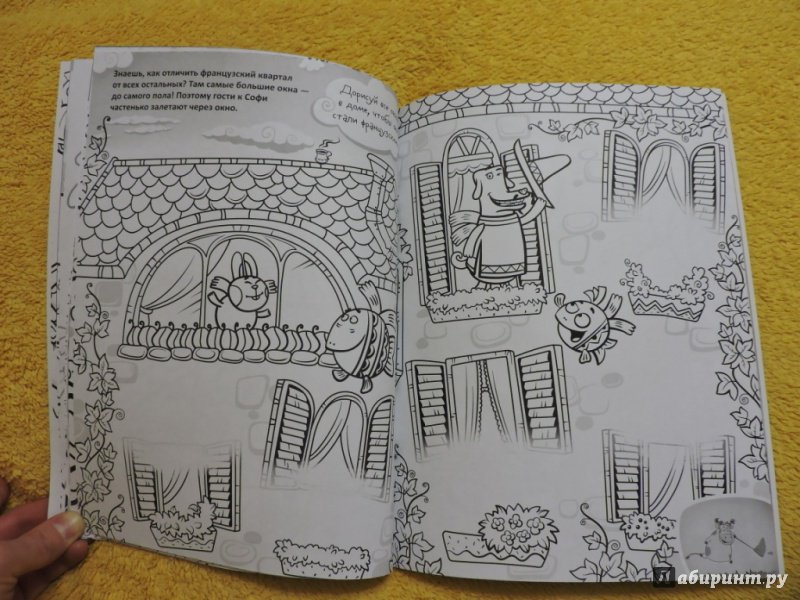 Знаешь, как отличить французский квартал
от всех остальных? Там самые большие окна —
до самого пола! Поэтому гости к Софи
частенько залетают через окно.
Дорисуй все
в доме, чтобы
стали французск
Лабиринт.ру